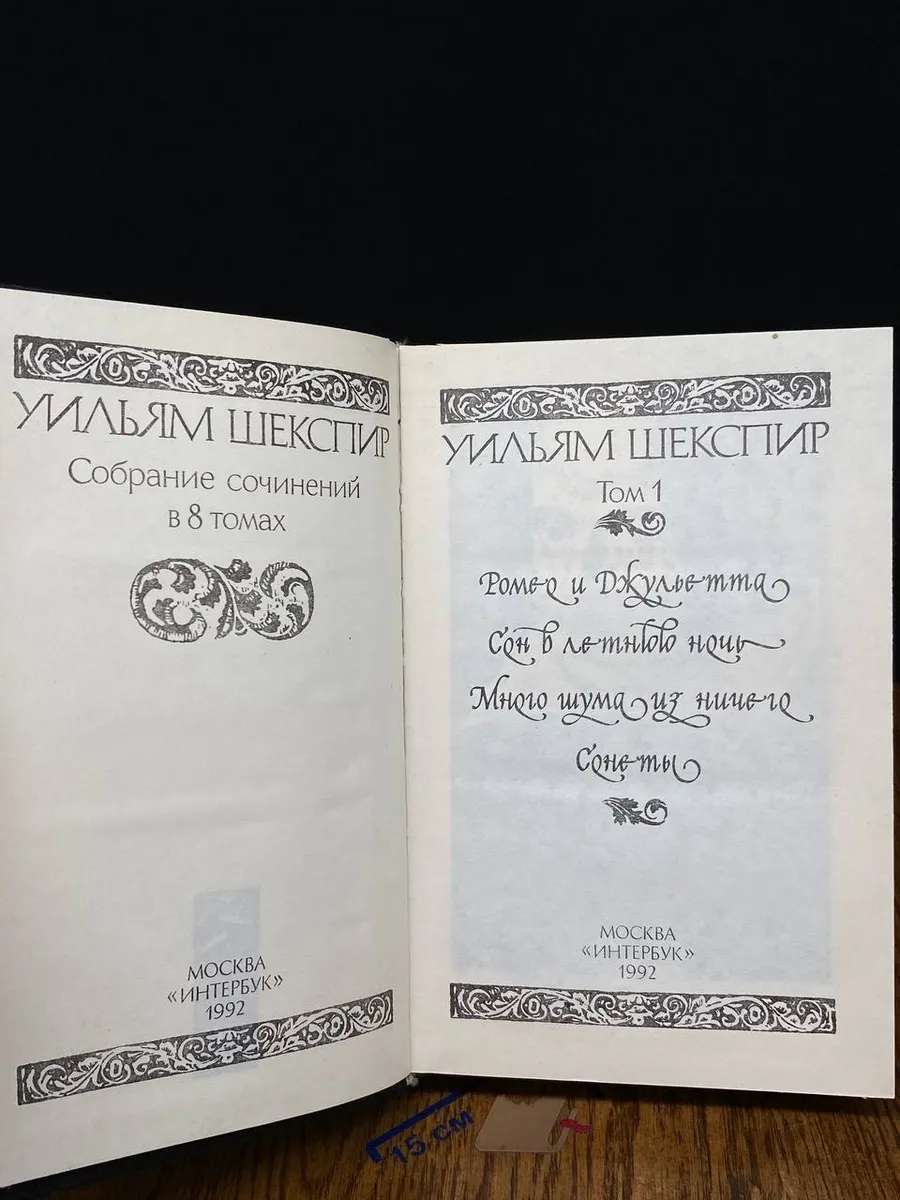 УИЛЬЯМ ШЕКСПИР
Собрание сочинений
в 8 томах
МОСКВА
«ИНТЕРБУК»
1992
УИЛЬЯМ ШЕКСПИР
Том 1
Ромео и Джульетта
Сон в летнюю ночь
Много шума из ничего
Сонеты
МОСКВА
«ИНТЕРБУК»
1992
15 см